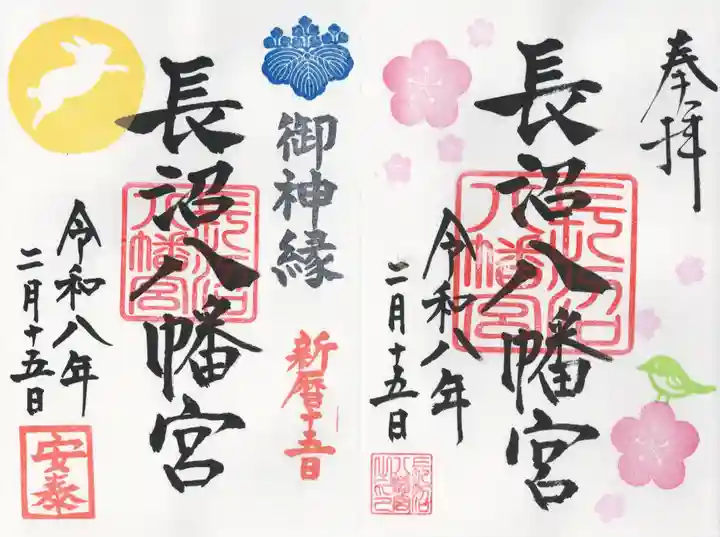 奉拝
長沼八幡宮
長沼八幡宮
令和八年
二月十五日
御神縁
新暦十五日
長沼八幡宮
長沼八幡宮
令和八年
二月十五日
安泰